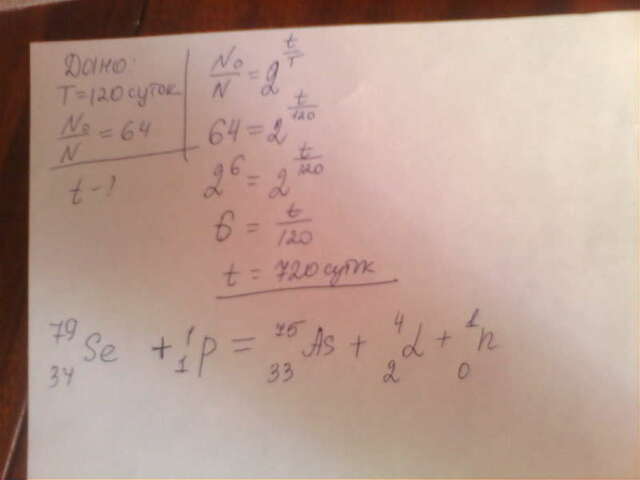 Дано:
T=120 суток
N₀/N = 64
t-?
N₀/N = 2^(t/T)
64 = 2^(t/120)
2⁶ = 2^(t/120)
6 = t/120
t = 720 суток
⁷⁹₃₄Se + ¹₁p = ⁷⁵₃₃As + ⁴₂α + ¹₀n